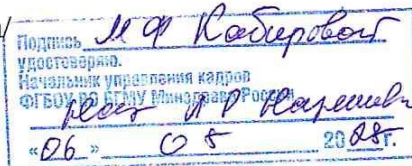 Подпись М Ф Кабировой
удостоверяю.
Начальник управления кадров
ФГБОУ ВО БГМУ Минздрава России
« 06 » 05 20 г.